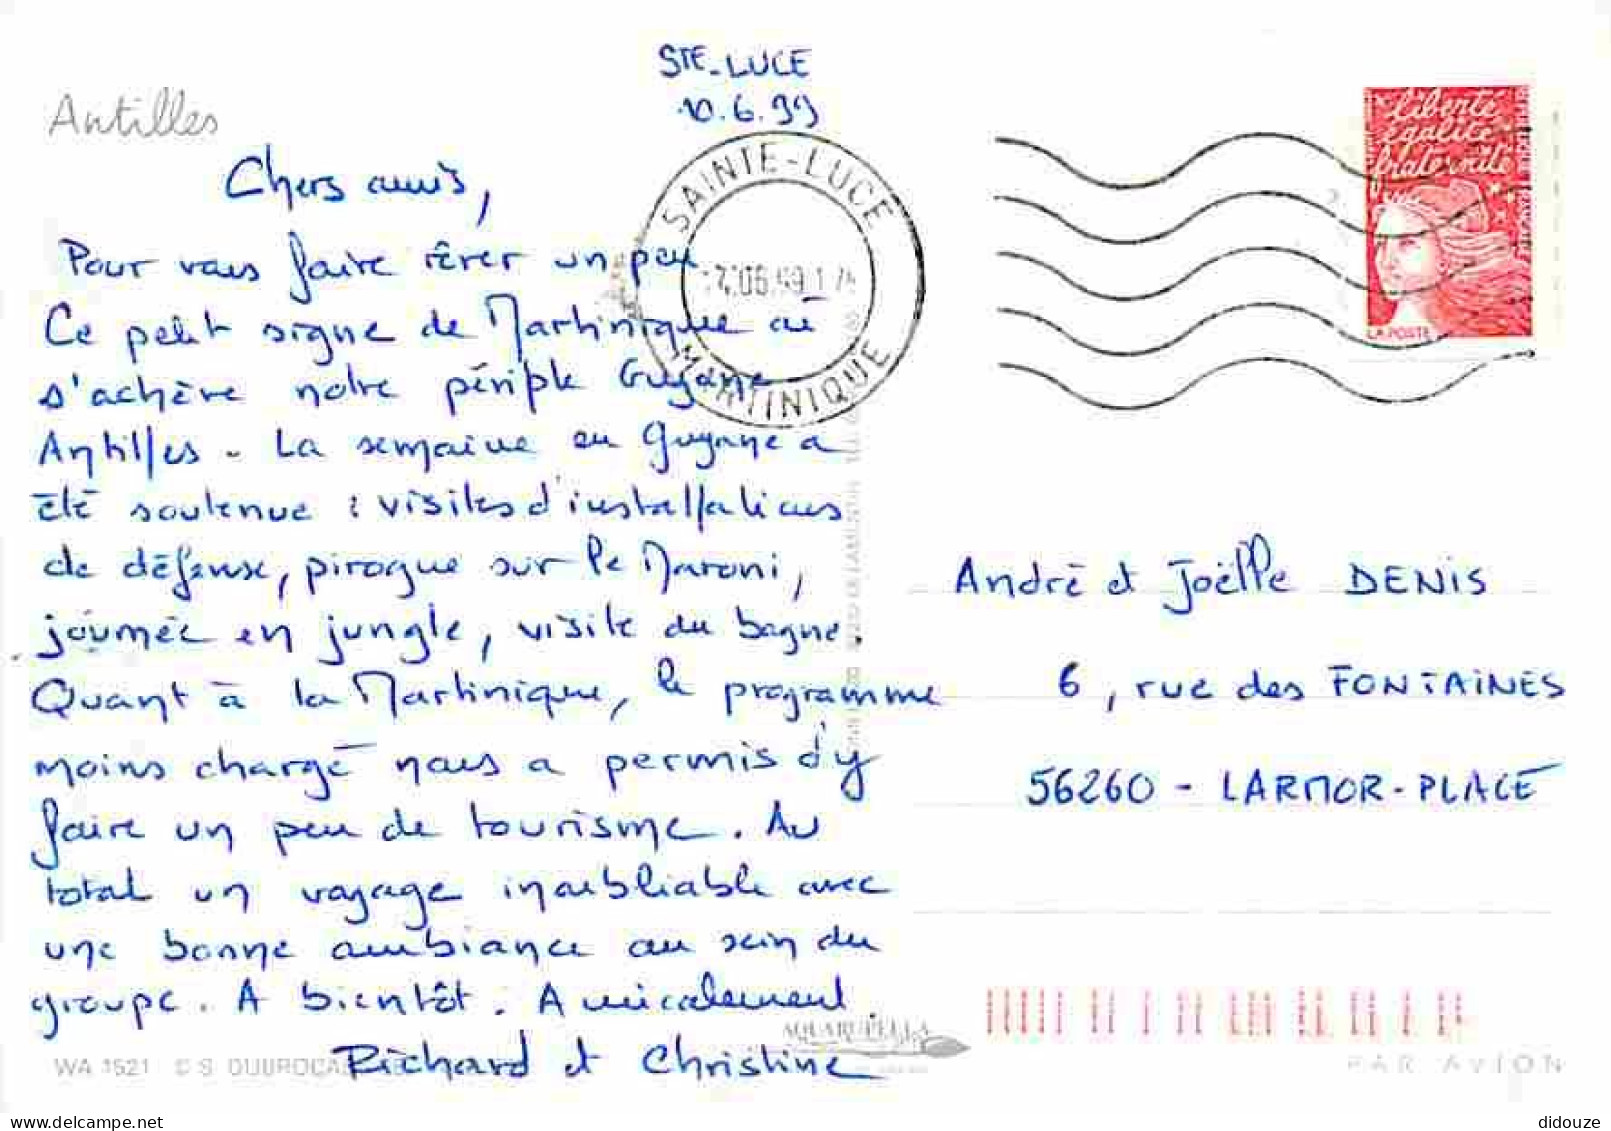 STE-LUCE
10.6.99
Antilles
Chers amis,
Pour vous faire rêver un peu
Ce petit signe de Martinique où
s'achève notre périple Guyane
Antilles - La semaine en Guyane a
été soutenue : visites d'installations
de défense, pirogue sur le Maroni,
journée en jungle, visite du bagne.
Quant à la Martinique, le programme
moins chargé nous a permis d'y
faire un peu de tourisme. Au
total un voyage inoubliable avec
une bonne ambiance au sein du
groupe. A bientôt. Amicalement.
Richard et Christine
WA 1521 © S. DUBROCA
AQUARUPELLA
SAINTE-LUCE
MARTINIQUE
liberté
égalité
fraternité
LA POSTE
André et Joëlle DENIS
6, rue des FONTAINES
56260 - LARMOR-PLAGE
PAR AVION
didouze